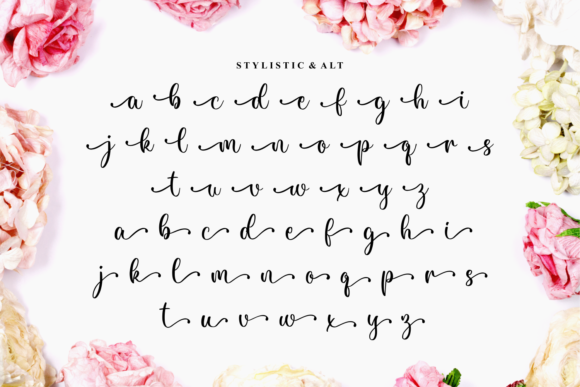 STYLISTIC & ALT
a b c d e f g h i
j k l m n o p q r s
t u v w x y z
a b c d e f g h i
j k l m n o q p r s
t u v w x y z